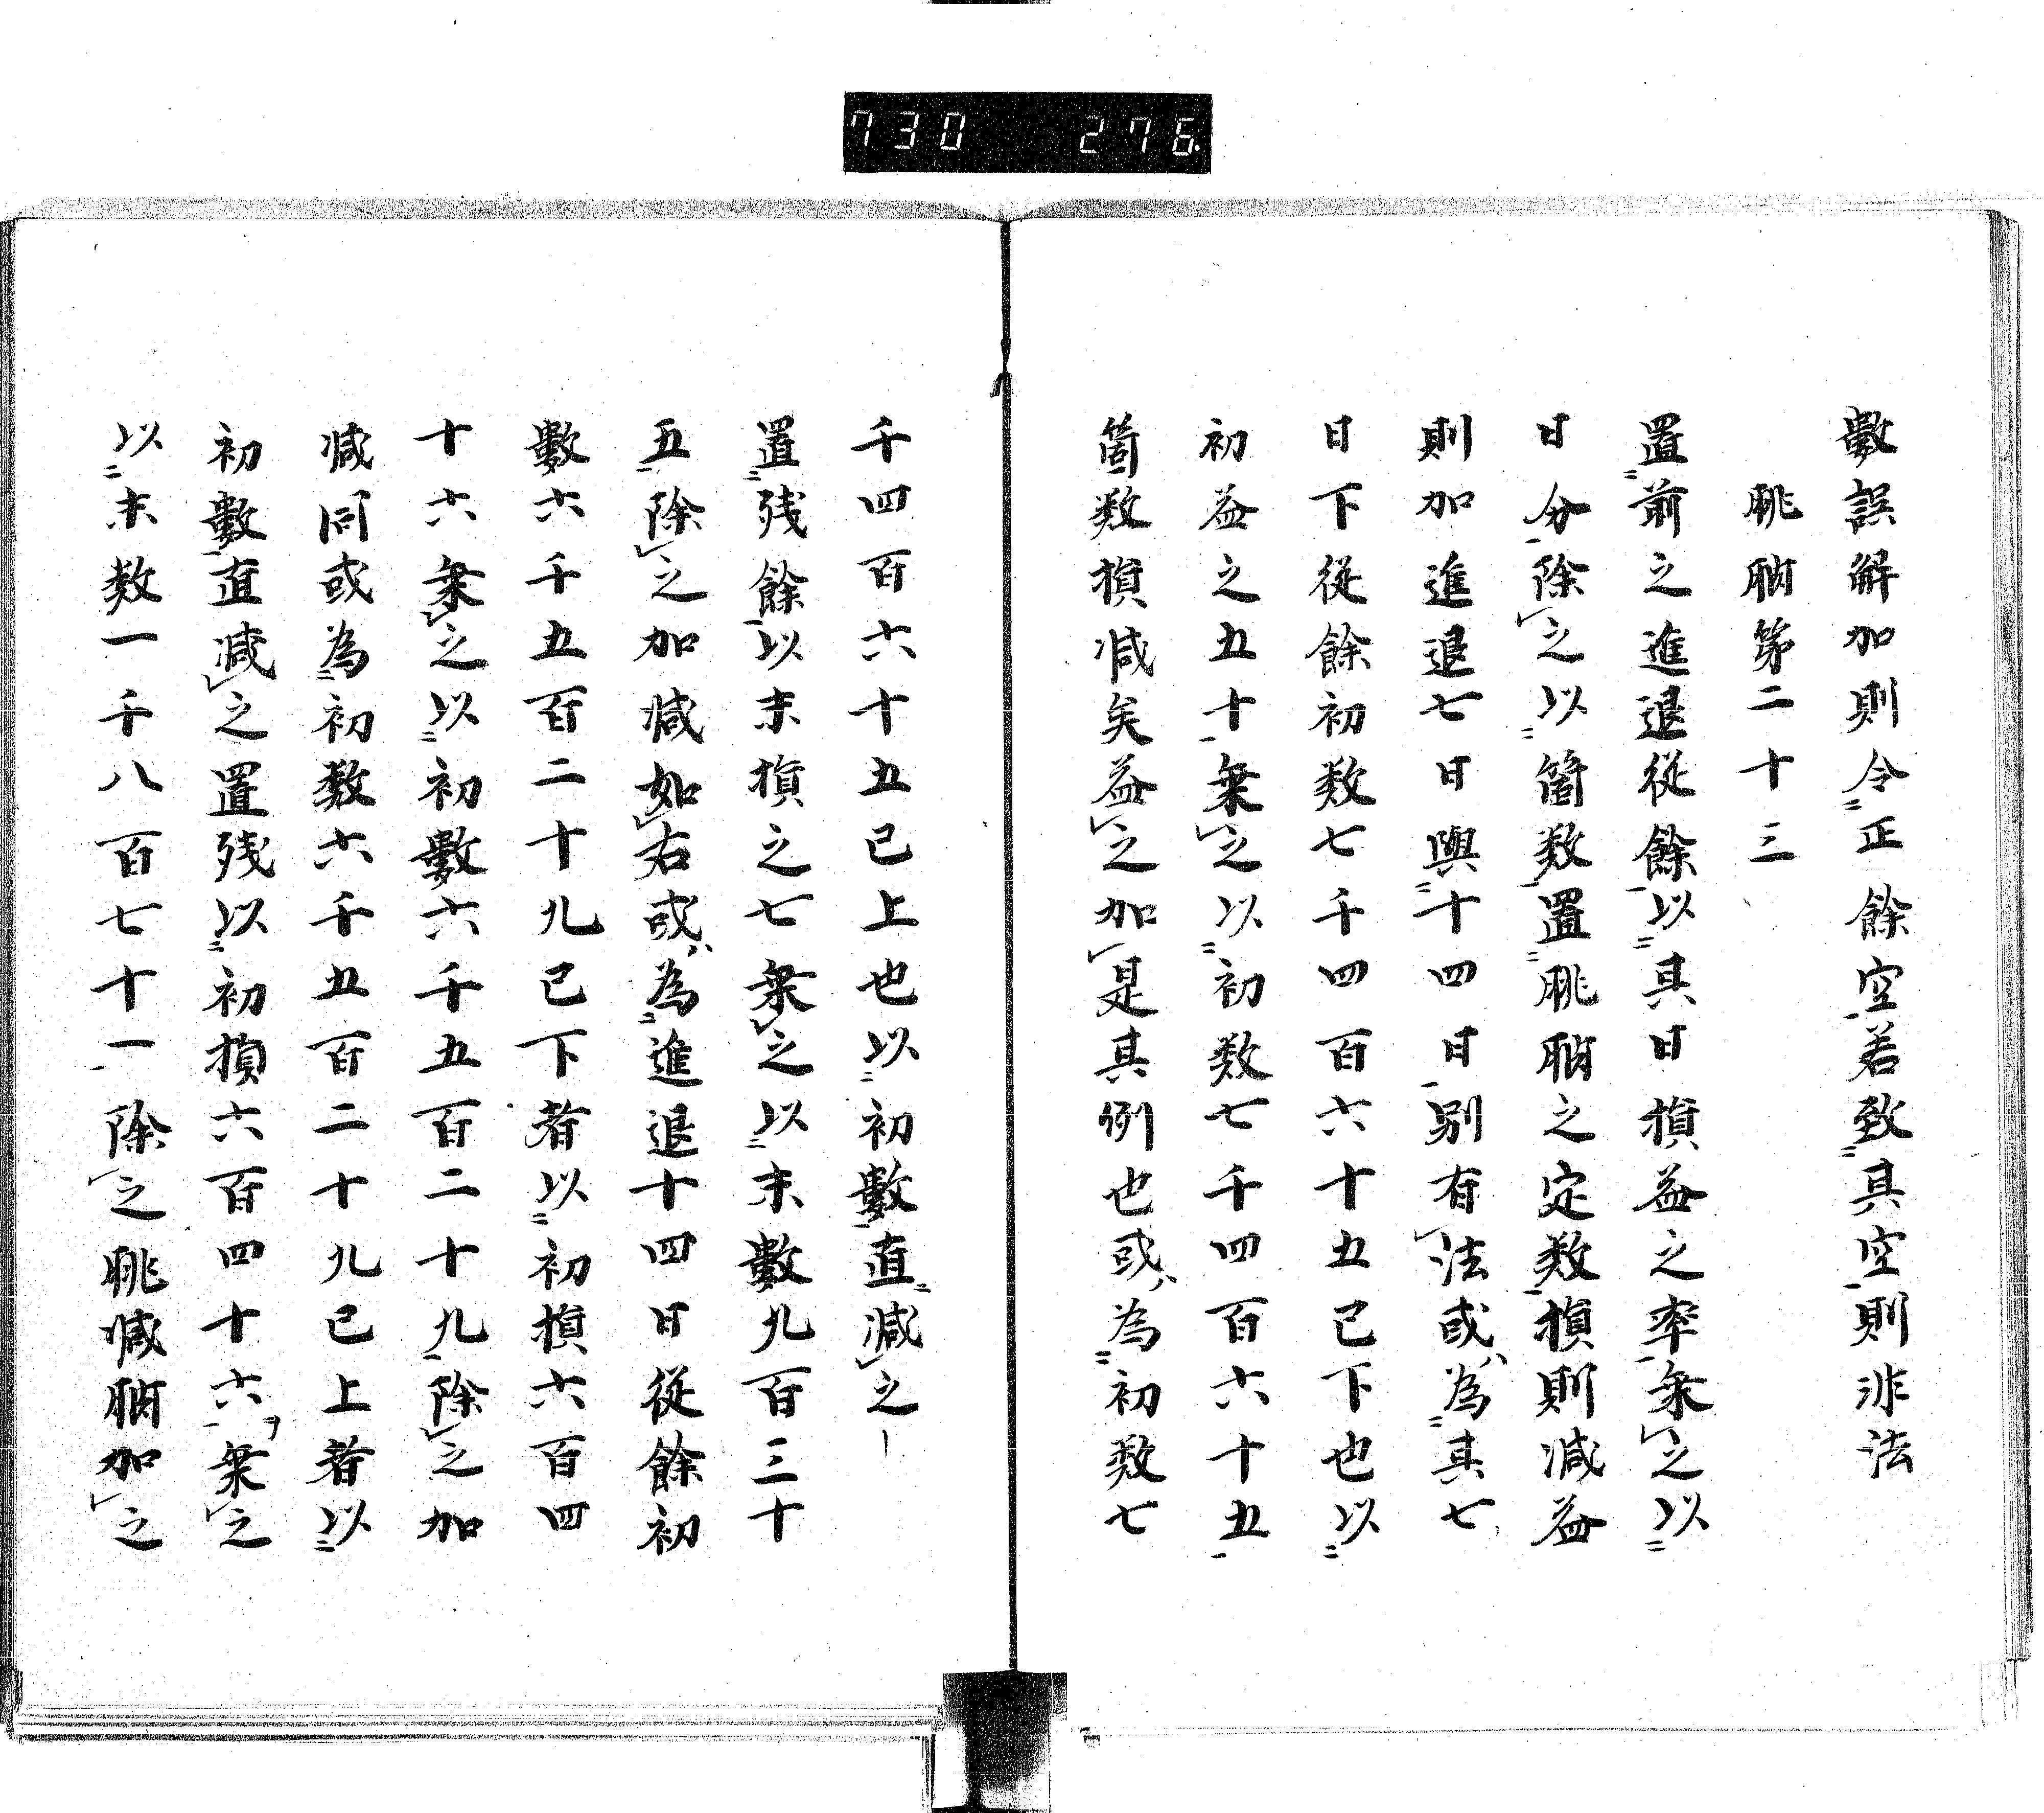 730 276
數誤解加則令正餘空若致其空則非法
朓朒第二十三
置前之進退從餘以其日損益之率乗之以
日分除之以箇数置朓朒之定数損則減益
則加進退七日與十四日別有法或為其七
日下從餘初数七千四百六十五已下也以
初益之五十乗之以初数七千四百六十五
箇数損減矣益之加是其例也或為初数七
千四百六十五已上也以初數直減之
置残餘以末損之七乗之以末數九百三十
五除之加減如右或為進退十四日從餘初
數六千五百二十九已下者以初損六百四
十六乗之以初數六千五百二十九除之加
減同或為初数六千五百二十九已上者以
初數直減之置残以初損六百四十六乗之
以末数一千八百七十一除之朓減朒加之